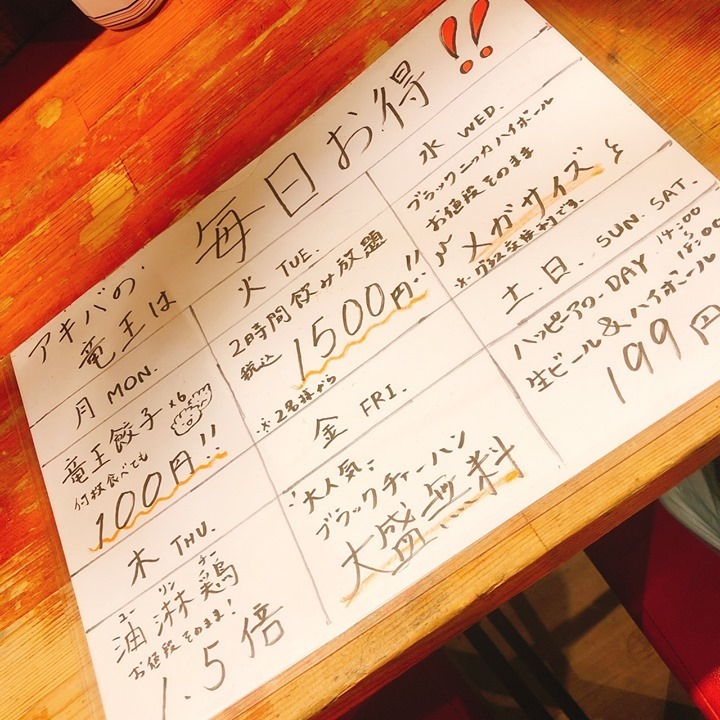 アキバの
竜王は
毎日お得!!
月 MON.
竜王餃子 x6
何枚食べても
100円!!
火 TUE.
2時間飲み放題
税込 1500円!!
※2名様から
水 WED.
ブラックニッカハイボール
お値段そのまま
メガサイズ
※グラス交換制です。
木 THU.
ユー リン チー
油淋鶏
お値段そのまま!
1.5倍
金 FRI.
大人気
ブラックチャーハン
大盛無料
土.日. SUN. SAT.
ハッピアワーDAY 14:00
18:00
生ビール&ハイボール
199円